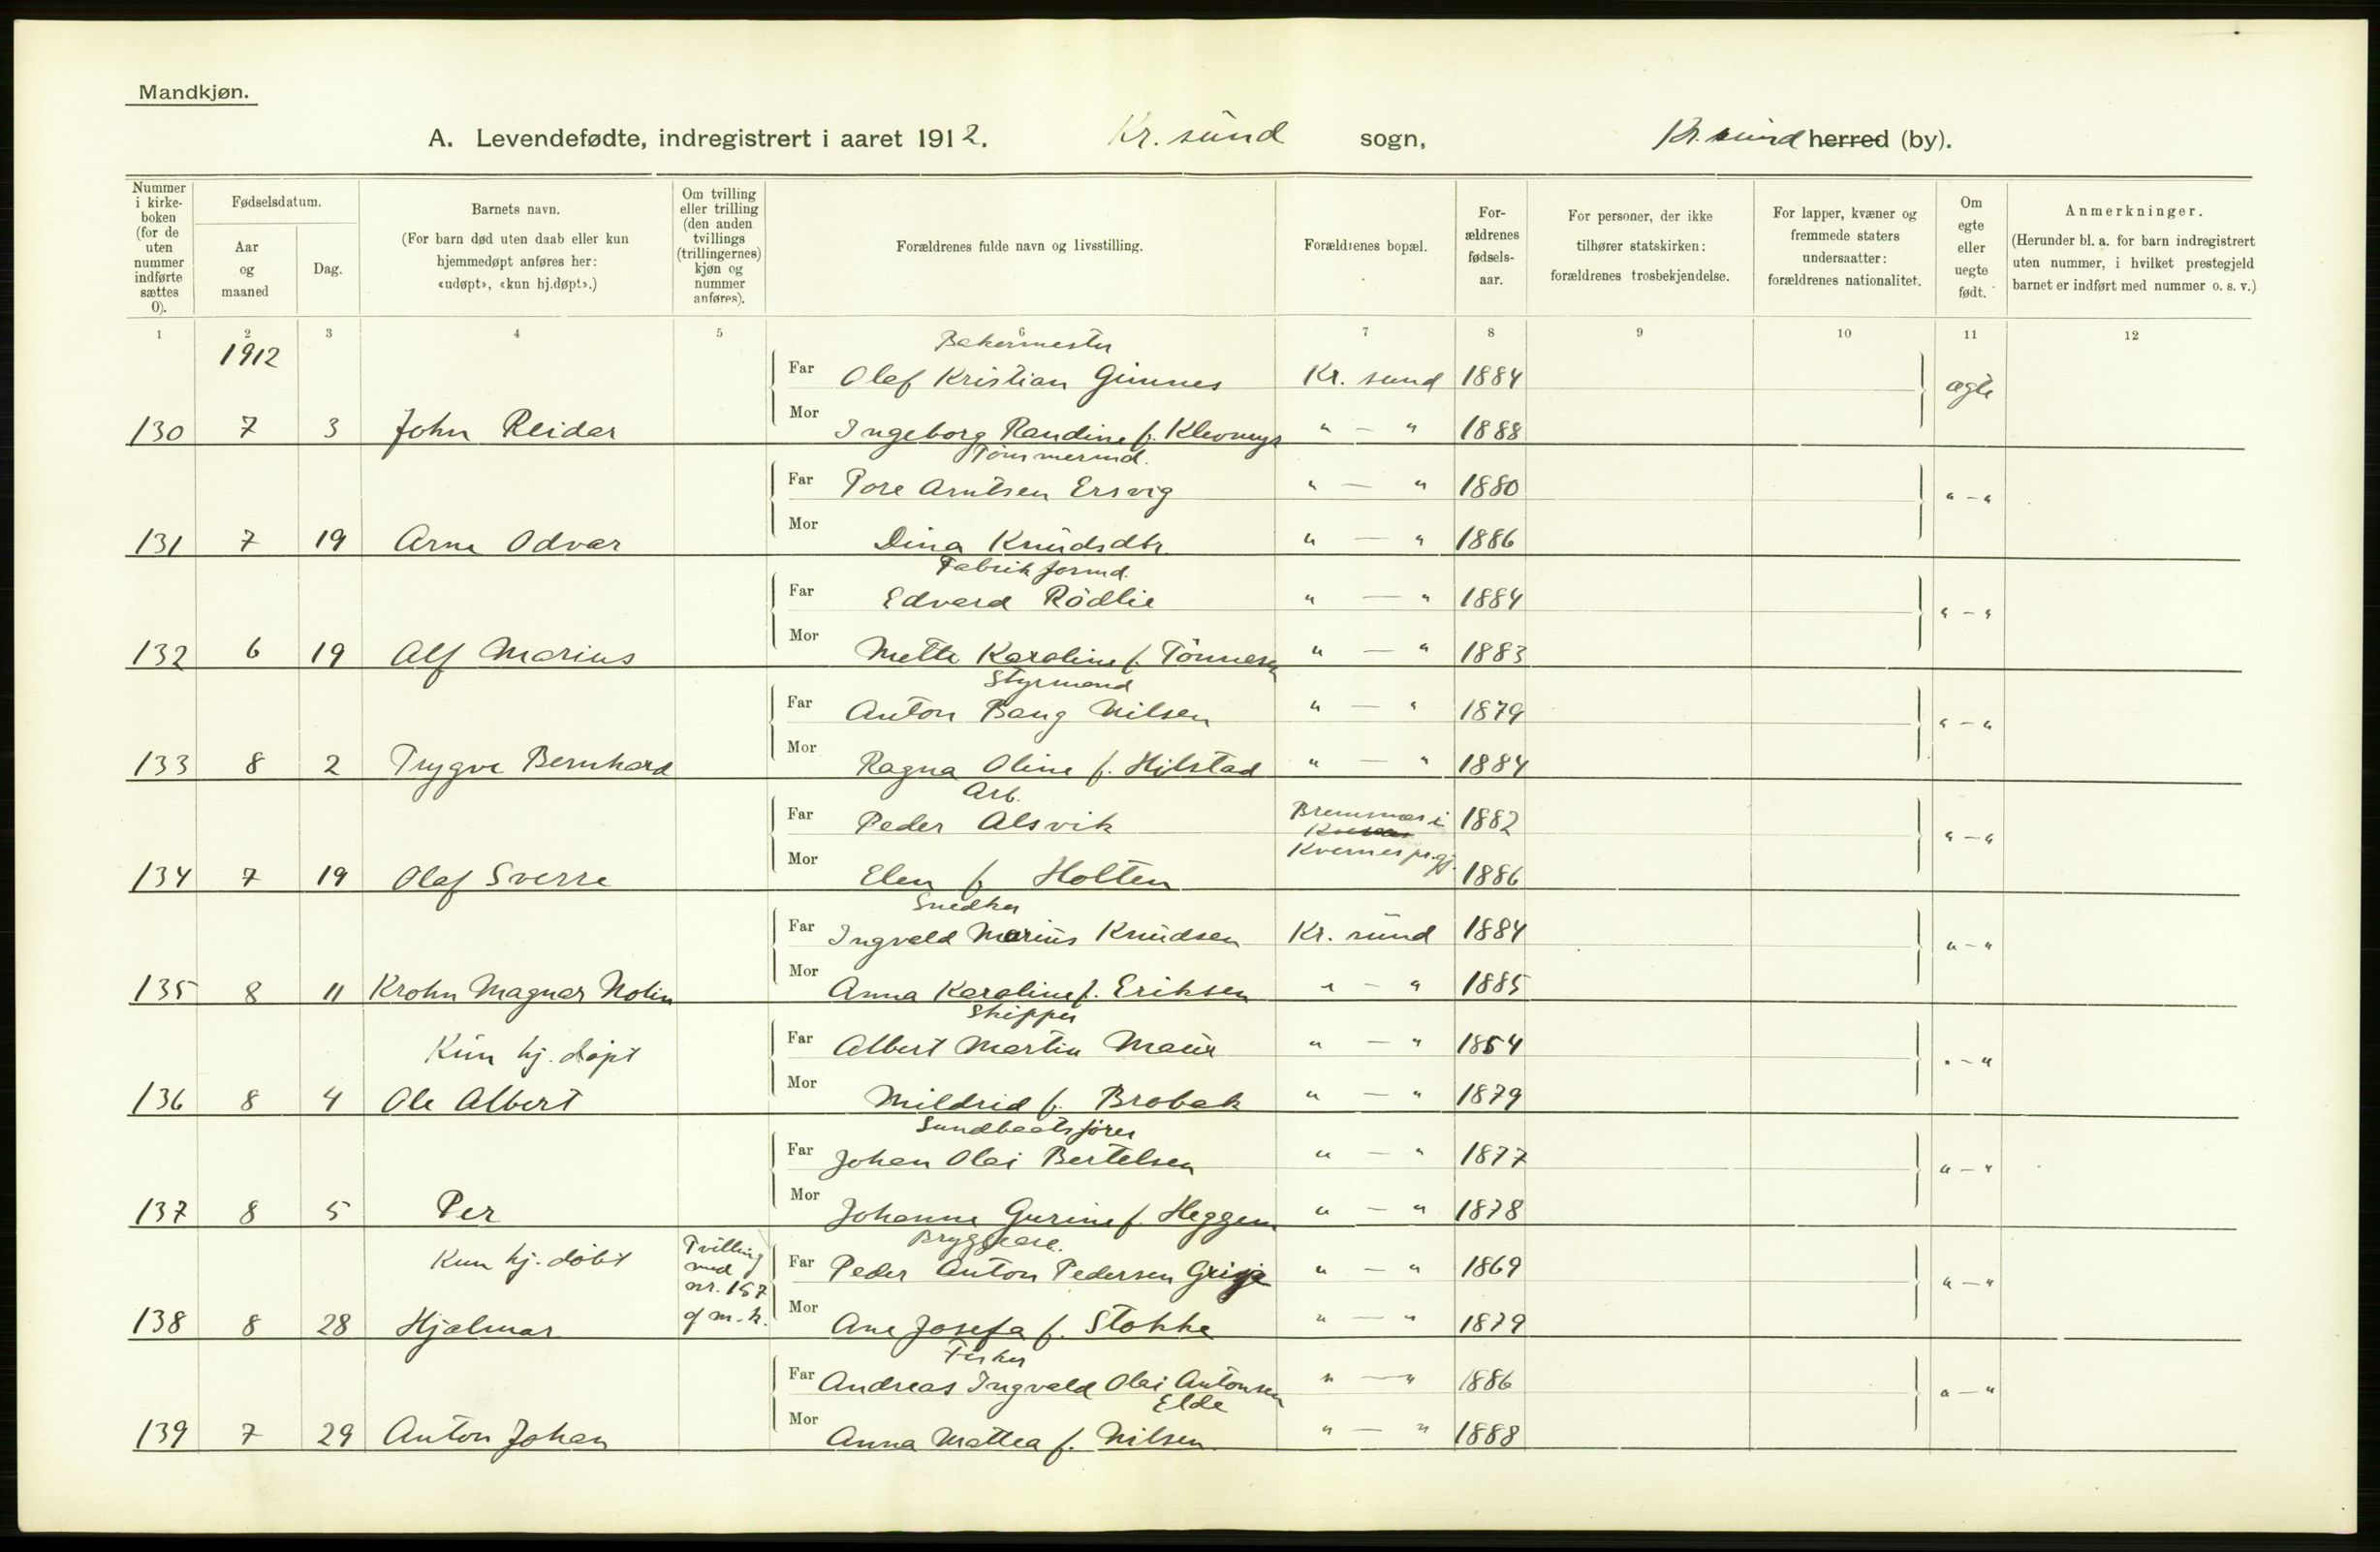 Mandkjøn.
A. Levendefødte, indregistrert i aaret 1912. Kr. sund sogn, Kr. sund herred (by).
Nummer i kirkeboken (for de uten nummer indførte sættes 0).
Fødselsdatum.
Aar og maaned
Dag.
Barnets navn.
(For barn død uten daab eller kun hjemmedøpt anføres her: «udøpt», «kun hj.døpt».)
Om tvilling eller trilling (den anden tvillings (trillingernes) kjøn og nummer anføres).
Forældrenes fulde navn og livsstilling.
Forældrenes bopæl.
Forældrenes fødselsaar.
For personer, der ikke tilhører statskirken: forældrenes trosbekjendelse.
For lapper, kvæner og fremmede staters undersaatter: forældrenes nationalitet.
Om egte eller uegte født.
Anmerkninger.
(Herunder bl. a. for barn indregistrert uten nummer, i hvilket prestegjeld barnet er indført med nummer o. s. v.)
1 2 3 4 5 6 7 8 9 10 11 12
1912
Bakermester
Far Olaf Kristian Gimnes Kr. sund 1884 ægte
130 7 3 John Reidar Mor Ingeborg Randine f. Klevmyr " — " 1888
Tømmermd.
Far Tore Arntsen Ersvig " — " 1880 " — "
131 7 19 Arne Odvar Mor Dina Knudsdtr. " — " 1886
Fabrikformd.
Far Edvard Rödlie " — " 1884 " — "
132 6 19 Alf Marius Mor Mette Karoline f. Tönnesen " — " 1883
Styrmand
Far Anton Bang Nilsen " — " 1879 " — "
133 8 2 Trygve Bernhard Mor Ragna Oline f. Hilstad " — " 1884
Arb.
Far Peder Alsvik Bremsnes i 1882 " — "
Kvernes pr.gj.
134 7 19 Olaf Sverre Mor Elen f. Holten 1886
Snedker
Far Ingvald Marius Knudsen Kr. sund 1884 " — "
135 8 11 Krohn Magnar Nolin Mor Anna Karoline f. Eriksen " — " 1885
Skipper
Kun hj. døpt Far Albert Martin Maur " — " 1854 " — "
136 8 4 Ole Albert Mor Mildrid f. Brobak " — " 1879
Sundbaatsfører
Far Johan Olai Bertelsen " — " 1877 " — "
137 8 5 Per Mor Johanne Gurine f. Heggem " — " 1878
Bryggearb.
Kun hj. döbt Tvilling med nr. 157 q m. k. Far Peder Anton Pedersen Gripje " — " 1869 " — "
138 8 28 Hjalmar Mor Ane Josefa f. Stokke " — " 1879
Fisker
Far Andreas Ingvald Olai Antonsen " — " 1886 " — "
Elde
139 7 29 Anton Johan Mor Anna Mattea f. Nilsen " — " 1888